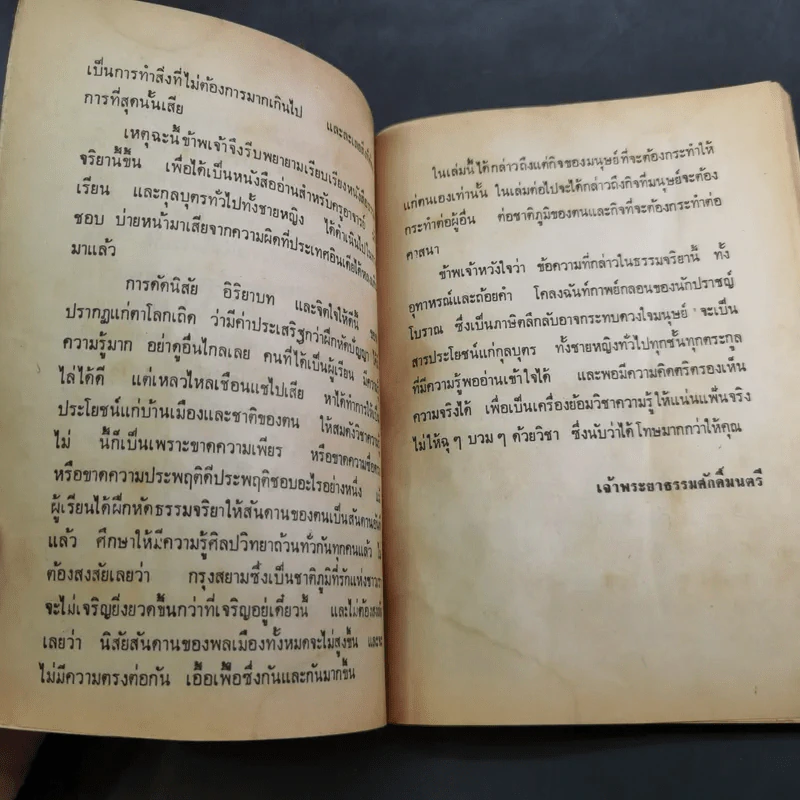 เป็นการทำสิ่งที่ไม่ต้องการมากเกินไป และละเลย
การที่สุดนั้นเสีย
เหตุฉะนี้ข้าพเจ้าจึงรีบพยายามเรียบเรียงหนังสือ
จริยานี้ขึ้น เพื่อได้เป็นหนังสืออ่านสำหรับครูอาจารย์
เรียน และกุลบุตรทั่วไปทั้งชายหญิง ได้ดำเนินไปใน
ชอบ บ่ายหน้ามาเสียจากความผิดที่ประเทศอินเดียได้
มาแล้ว
การดัดนิสัย อิริยาบท และจิตใจให้ดีนี้
ปรากฏแก่ตาโลกเถิด ว่ามีค่าประเสริฐกว่าฝึกหัดปัญญา
ความรู้มาก อย่าดูอื่นไกลเลย คนที่ได้เป็นผู้เรียน
ไล่ได้ดี แต่เหลวไหลเชือนแชไปเสีย หาได้ทำการให้เป็น
ประโยชน์แก่บ้านเมืองและชาติของตน ให้สมดังวิชาความรู้
ไม่ นี้ก็เป็นเพราะขาดความเพียร หรือขาดความ
หรือขาดความประพฤติดีประพฤติชอบอะไรอย่างหนึ่ง
ผู้เรียนได้ฝึกหัดธรรมจริยาให้สันดานของตนเป็นสันดาน
แล้ว ศึกษาให้มีความรู้ศิลปวิทยาถ้วนทั่วกันทุกคนแล้ว
ต้องสงสัยเลยว่า กรุงสยามซึ่งเป็นชาติภูมิที่รักแห่ง
จะไม่เจริญยิ่งยวดขึ้นกว่าที่เจริญอยู่เดี๋ยวนี้ และไม่ต้อง
เลยว่า นิสัยสันดานของพลเมืองทั้งหมดจะไม่สูงขึ้น
ไม่มีความตรงต่อกัน เอื้อเฟื้อซึ่งกันและกันมากขึ้น
ในเล่มนี้ได้กล่าวถึงแต่กิจของมนุษย์ที่จะต้องกระทำให้
แก่ตนเองเท่านั้น ในเล่มต่อไปจะได้กล่าวถึงกิจที่มนุษย์จะต้อง
กระทำต่อผู้อื่น ต่อชาติภูมิของตนและกิจที่จะต้องกระทำต่อ
ศาสนา
ข้าพเจ้าหวังใจว่า ข้อความที่กล่าวในธรรมจริยานี้ ทั้ง
อุทาหรณ์และถ้อยคำ โคลงฉันท์กาพย์กลอนของนักปราชญ์
โบราณ ซึ่งเป็นภาษิตลึกลับอาจกระทบดวงใจมนุษย์ จะเป็น
สารประโยชน์แก่กุลบุตร ทั้งชายหญิงทั่วไปทุกชั้นทุกตระกูล
ที่มีความรู้พออ่านเข้าใจได้ และพอมีความคิดตริตรองเห็น
ความจริงได้ เพื่อเป็นเครื่องย้อมวิชาความรู้ให้แน่นแฟ้นจริง
ไม่ให้ฉุ ๆ บวม ๆ ด้วยวิชา ซึ่งนับว่าได้โทษมากกว่าให้คุณ
เจ้าพระยาธรรมศักดิ์มนตรี